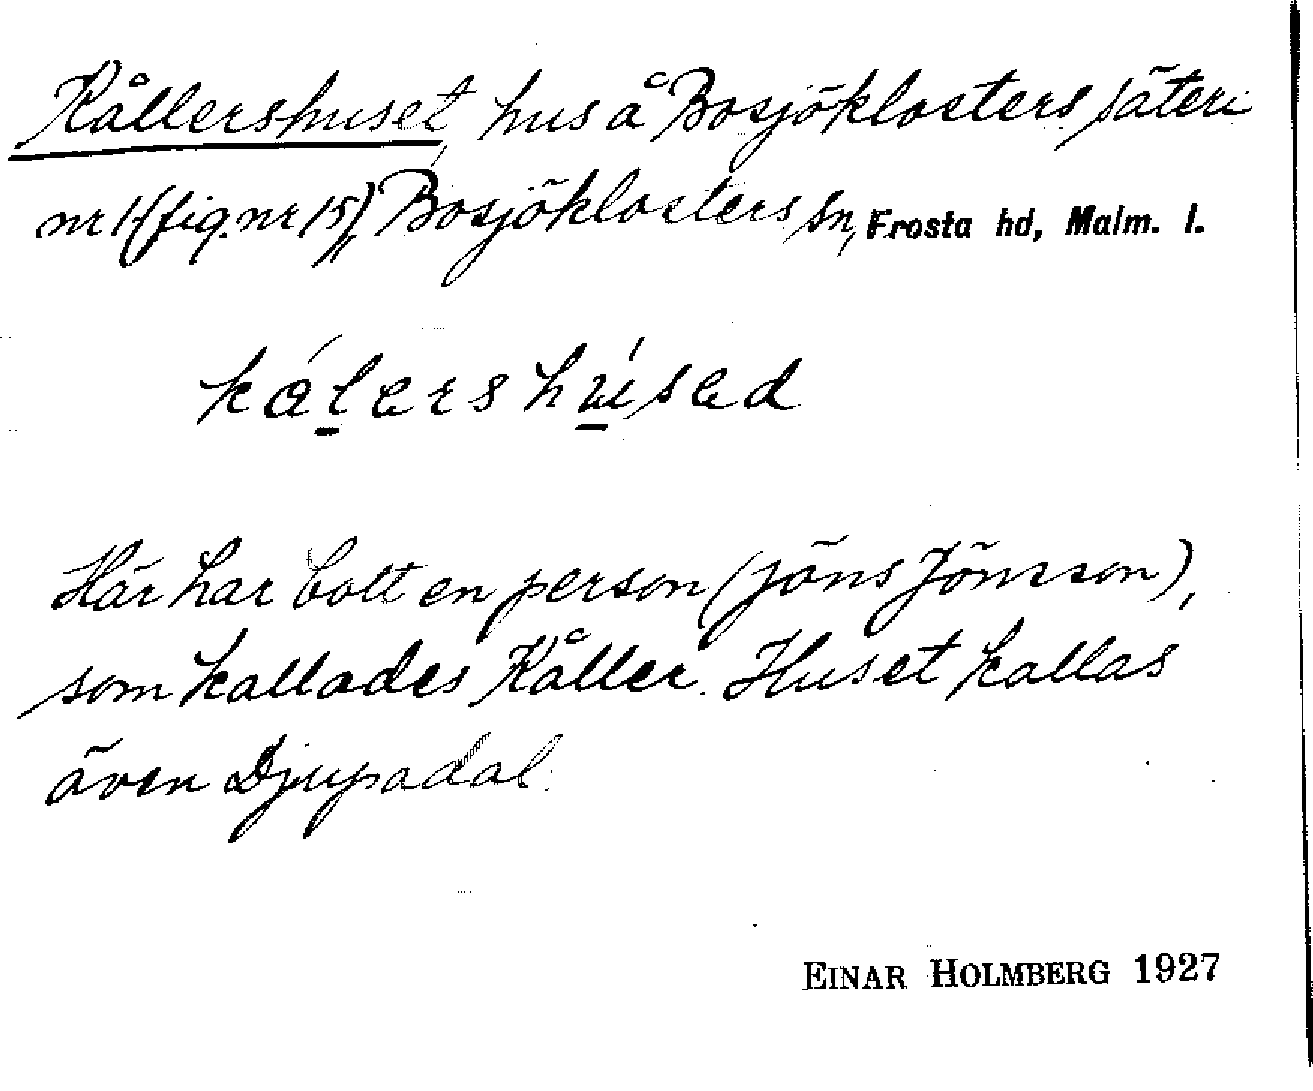 Kållershuset, hus å Bosjöklosters säteri
nr 1 (fig. nr 15), Bosjöklosters sn, Frosta hd, Malm. l.
kålershúsed
Här har bott en person (Jöns Jönsson),
som kallades Kåller. Huset kallas
även Djupadal.
EINAR HOLMBERG 1927